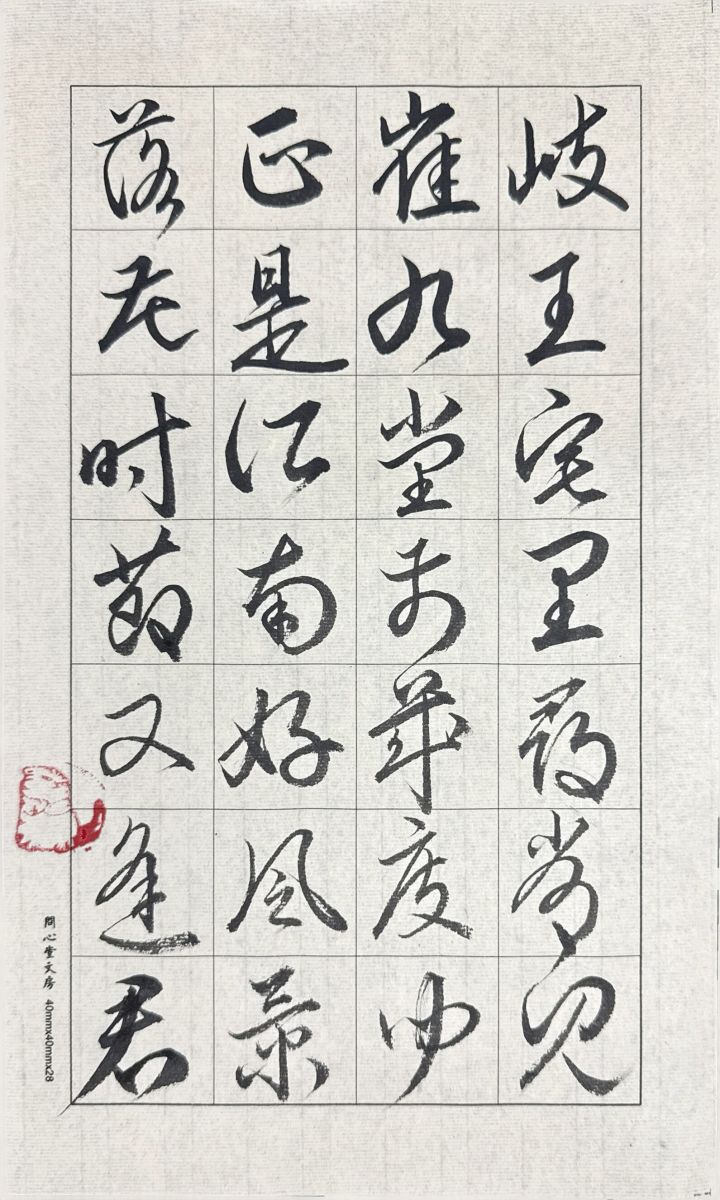 岐王宅里尋常見
崔九堂前幾度聞
正是江南好風景
落花時節又逢君
問心堂文房 40mmx40mmx28